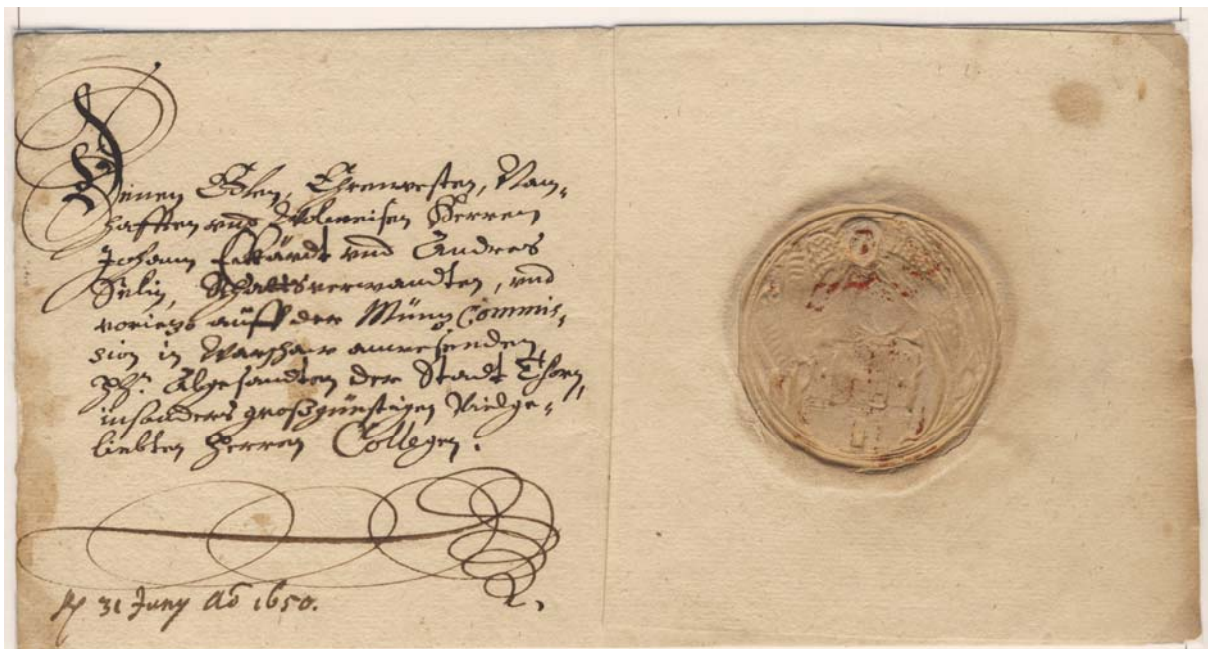 Denen Edlen, Ehrenvesten, Nam-
hafften vnd Wolweisen Herren
Johann Eckardt vnd Andres
Rhattsverwandten, vnd
vorietzo auff der Müntz Commis-
sion in Warschaw anwesenden
Abgesandten der Stadt Thorn,
insonders großgünstigen Vielge-
liebten Herren Collegen.
31 Juny Aō 1650.